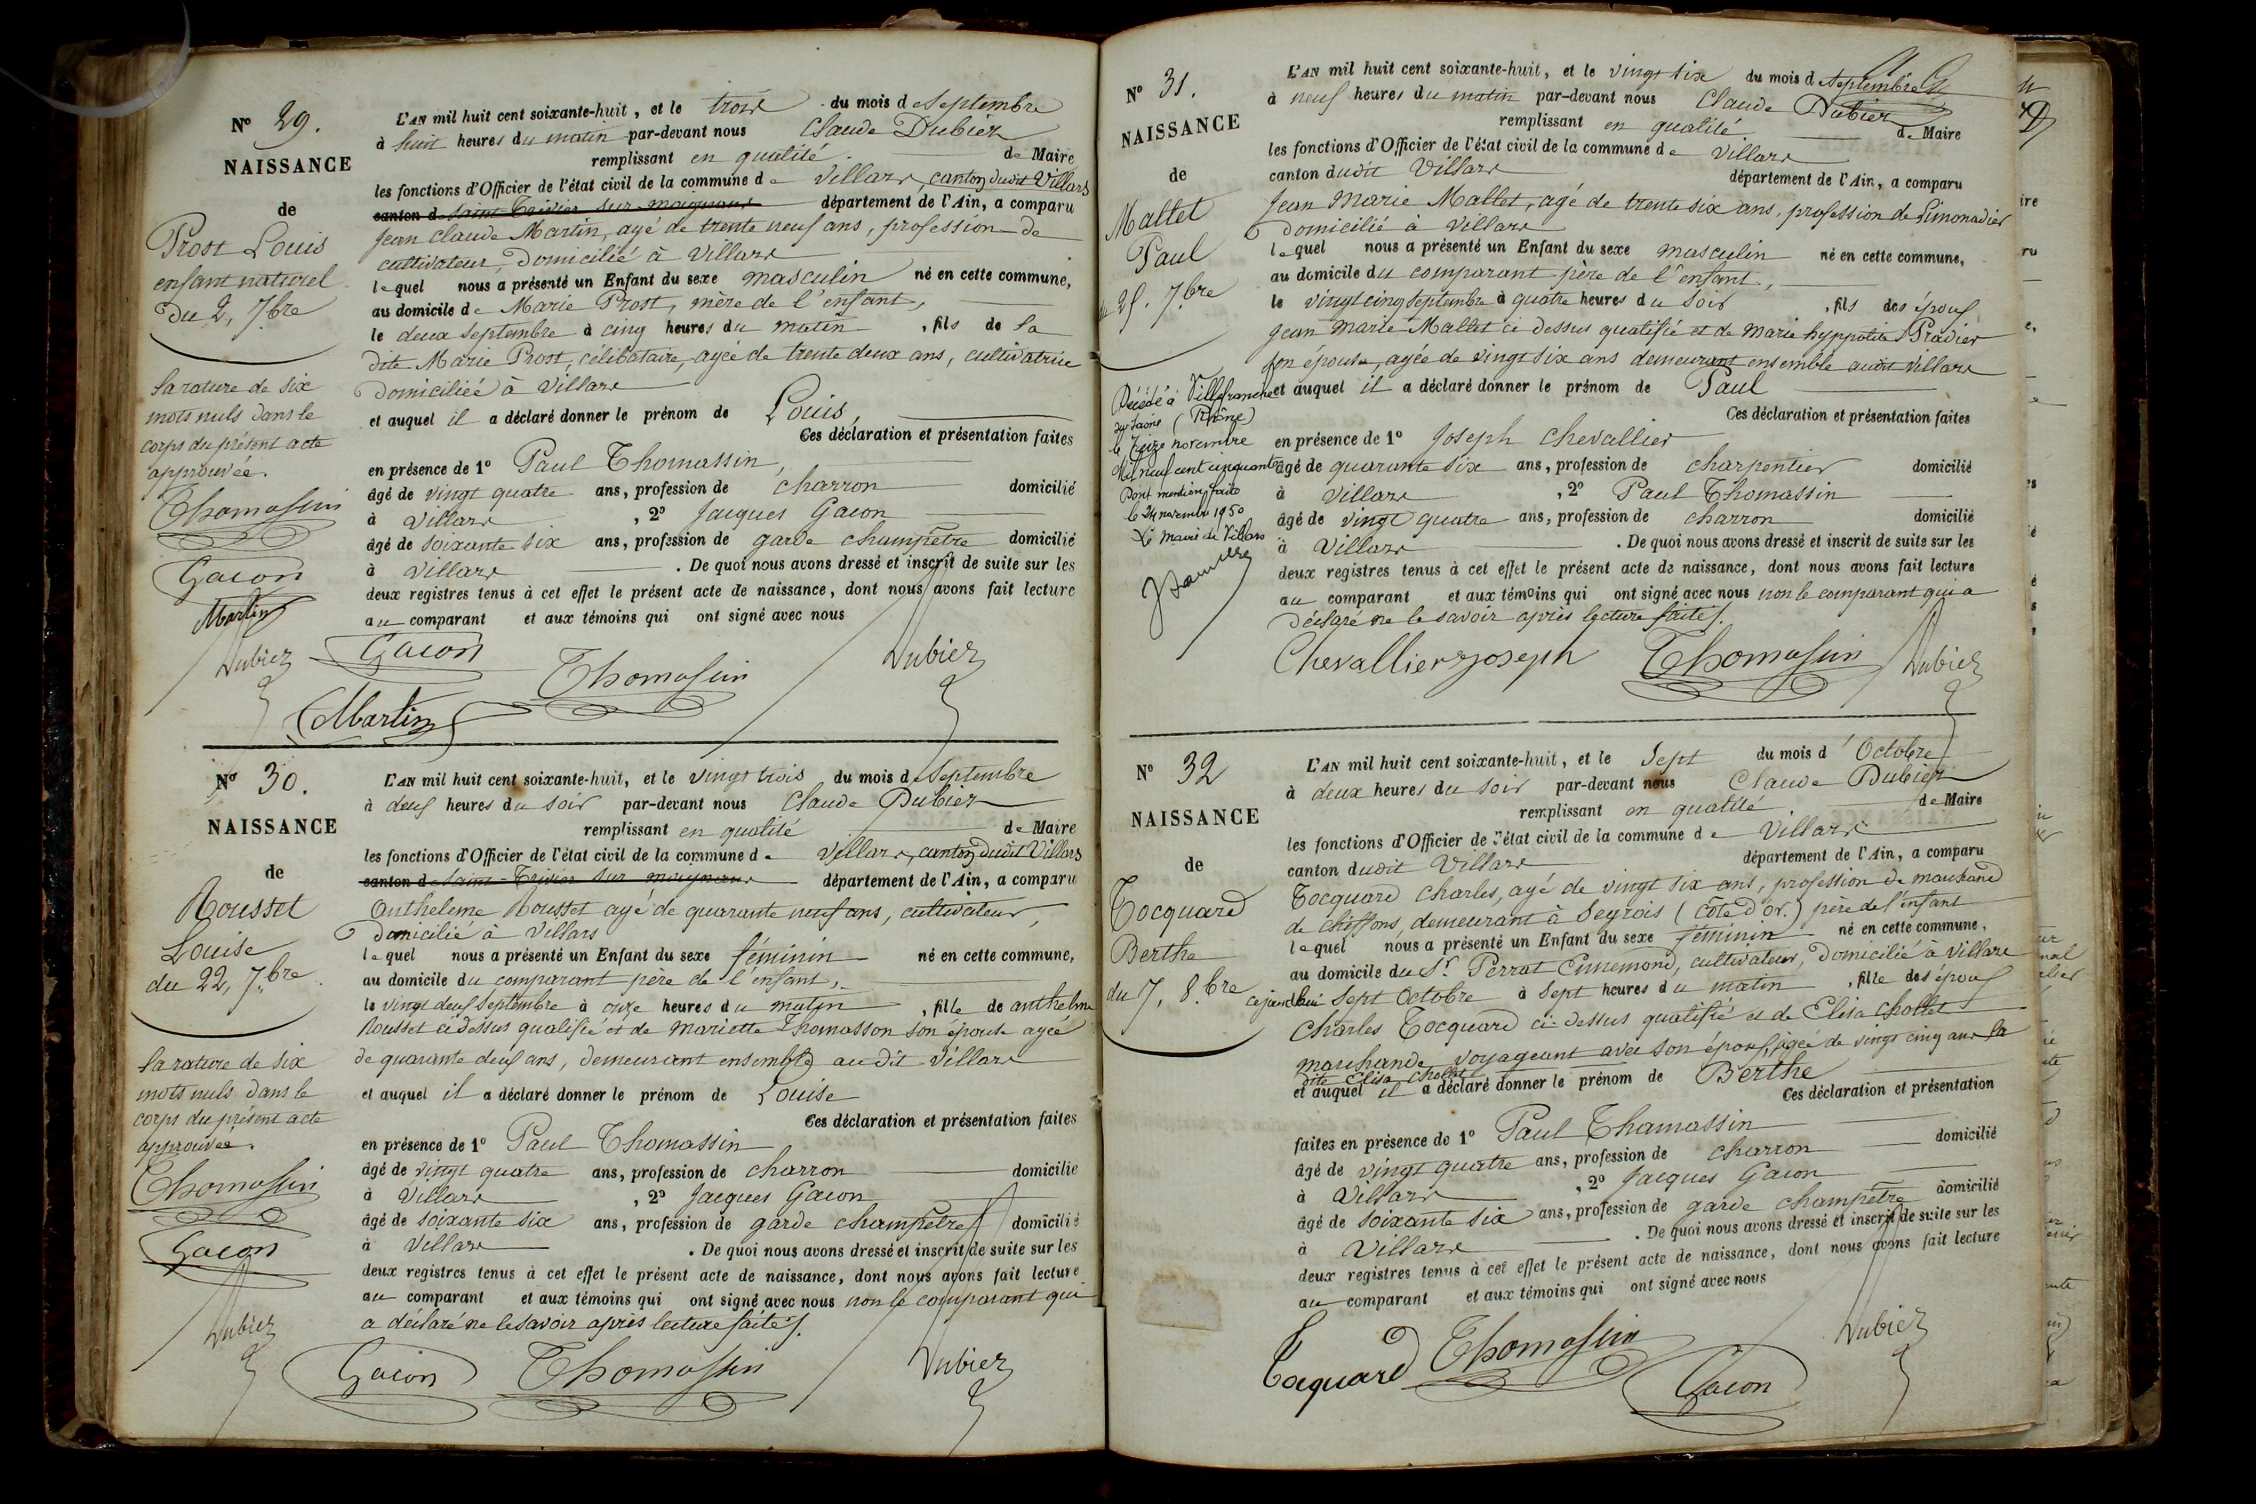 N° 29.
NAISSANCE
de
Prost Louis
enfant naturel
du 2, 7bre
la rature de six
mots nuls dans le
corps du présent acte
approuvée.
Thomassin
Gacon
Martin
Dubiez
L'AN mil huit cent soixante-huit, et le trois du mois de Septembre
à huit heures du matin par-devant nous Claude Dubiez
remplissant en qualité de Maire
les fonctions d'Officier de l'état civil de la commune de Villars, canton dudit Villars
canton de Saint-Trivier sur moignans département de l'Ain, a comparu
Jean Claude Martin, agé de trente neuf ans, profession de
cultivateur, domicilié à Villars
lequel nous a présenté un Enfant du sexe masculin né en cette commune,
au domicile de Marie Prost, mère de l'enfant,
le deux Septembre à cinq heures du matin, fils de la
dite Marie Prost, célibataire, agée de trente deux ans, cultivatrice
domiciliée à Villars
et auquel il a déclaré donner le prénom de Louis,
Ces déclaration et présentation faites
en présence de 1° Paul Thomassin,
âgé de vingt quatre ans, profession de charron domicilié
à Villars, 2° Jacques Gacon
âgé de soixante six ans, profession de garde champêtre domicilié
à Villars. De quoi nous avons dressé et inscrit de suite sur les
deux registres tenus à cet effet le présent acte de naissance, dont nous avons fait lecture
au comparant et aux témoins qui ont signé avec nous
Gacon
Thomassin
Dubiez
Martin
N° 30.
NAISSANCE
de
Rousset
Louise
du 22, 7bre
la rature de six
mots nuls dans le
corps du présent acte
approuvée.
Thomassin
Gacon
Dubiez
L'AN mil huit cent soixante-huit, et le vingt trois du mois de Septembre
à deux heures du soir par-devant nous Claude Dubiez
remplissant en qualité de Maire
les fonctions d'Officier de l'état civil de la commune de Villars, canton dudit Villars
canton de Saint-Trivier sur moignans département de l'Ain, a comparu
Anthelme Rousset agé de quarante neuf ans, cultivateur,
domicilié à Villars
lequel nous a présenté un Enfant du sexe féminin né en cette commune,
au domicile du comparant père de l'enfant,
le vingt deux Septembre à onze heures du matin, fille de anthelme
Rousset ci dessus qualifié et de Mariette Thomasson son épouse agée
de quarante deux ans, demeurant ensemble au dit Villars
et auquel il a déclaré donner le prénom de Louise
Ces déclaration et présentation faites
en présence de 1° Paul Thomassin
âgé de vingt quatre ans, profession de charron domicilié
à Villars, 2° Jacques Gacon
âgé de soixante six ans, profession de garde champêtre domicilié
à Villars. De quoi nous avons dressé et inscrit de suite sur les
deux registres tenus à cet effet le présent acte de naissance, dont nous avons fait lecture
au comparant et aux témoins qui ont signé avec nous non le comparant qui
a déclaré ne le savoir après lecture faite.
Gacon
Thomassin
Dubiez
N° 31.
NAISSANCE
de
Mallet
Paul
du 25. 7bre
Décédé à Villefranche
sur Saône (Rhône)
le treize novembre
Mil neuf cent cinquante
Dont mention faite
le 24 novembre 1950
Le Maire de Villars
L'AN mil huit cent soixante-huit, et le vingt six du mois de Septembre
à neuf heures du matin par-devant nous Claude Dubiez
remplissant en qualité de Maire
les fonctions d'Officier de l'état civil de la commune de Villars
canton dudit Villars département de l'Ain, a comparu
Jean Marie Mallet, agé de trente six ans, profession de Limonadier
domicilié à Villars
lequel nous a présenté un Enfant du sexe masculin né en cette commune,
au domicile du comparant père de l'enfant,
le vingt cinq Septembre à quatre heures du soir, fils des époux
Jean Marie Mallet ci dessus qualifié et de Marie hyppolite Pradier
son épouse, agée de vingt six ans demeurant ensemble audit Villars
et auquel il a déclaré donner le prénom de Paul
Ces déclaration et présentation faites
en présence de 1° Joseph Chevallier
âgé de quarante six ans, profession de charpentier domicilié
à Villars, 2° Paul Thomassin
âgé de vingt quatre ans, profession de charron domicilié
à Villars. De quoi nous avons dressé et inscrit de suite sur les
deux registres tenus à cet effet le présent acte de naissance, dont nous avons fait lecture
au comparant et aux témoins qui ont signé avec nous non le comparant qui a
déclaré ne le savoir après lecture faite.
Chevallier joseph
Thomassin
Dubiez
N° 32
NAISSANCE
de
Tocquard
Berthe
du 7, 8.bre
L'AN mil huit cent soixante-huit, et le Sept du mois d'Octobre
à deux heures du soir par-devant nous Claude Dubiez
remplissant en qualité de Maire
les fonctions d'Officier de l'état civil de la commune de Villars
canton dudit Villars département de l'Ain, a comparu
Tocquard Charles, agé de vingt six ans, profession de marchand
de chiffons, demeurant à Seyrois (Côte d'Or.) père de l'enfant
lequel nous a présenté un Enfant du sexe féminin né en cette commune,
au domicile du Sr Perrat Ennemond, cultivateur, domicilié à Villars
cejourd'hui Sept Octobre à Sept heures du matin, fille des époux
Charles Tocquard ci-dessus qualifié et de Elisa Chollet
marchande voyageant avec son époux, agée de vingt cinq ans la
dite Elisa Chollet
et auquel il a déclaré donner le prénom de Berthe
Ces déclaration et présentation
faites en présence de 1° Paul Thomassin
âgé de vingt quatre ans, profession de charron domicilié
à Villars, 2° Jacques Gacon
âgé de soixante six ans, profession de garde champêtre domicilié
à Villars. De quoi nous avons dressé et inscrit de suite sur les
deux registres tenus à cet effet le présent acte de naissance, dont nous avons fait lecture
au comparant et aux témoins qui ont signé avec nous
Tocquard
Thomassin
Gacon
Dubiez